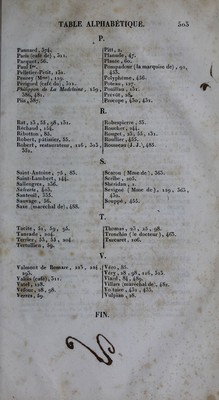 TABLE ALPHABÉTIQUE. 505
P.
Pannard, 324.
Paris (café de), 311.
Pacquet, 36.
Paul Iᵉʳ.
Pelletier-Petit, 181.
Penney (Mᵐᵉ), 119.
Périgord (de), 312.
Philippon de La Madeleine, 159,
386, 481.
Piis, 387.
Pitt, 2.
Planude, 45.
Platon, 60.
Pompadour (la marquise de), 92,
413.
Polyphème, 456.
Poteau, 127.
Pouillier, 151.
Prévôt, 28.
Procope, 430, 431.
R.
Rat, 23, 53, 98, 131.
Réchaud, 154.
Riberton, 82.
Robert, pâtissier, 53.
Robert, restaurateur, 126, 303,
352.
Robespierre, 67.
Roucher, 244.
Rouget, 23, 53, 131.
Rouiller, 428.
Rousseau (J. J.), 485.
S.
Saint-Amour, 72, 85.
Saint-Lambert, 144.
Sallengres, 136.
Salverte, 453.
Santeuil, 353.
Sauvage, 36.
Saxe (maréchal de), 488.
Scaron (Mme de), 363.
Scribe, 208.
Sheridan, 2.
Sévigné (Mme de), 119, 363,
430.
Souppé, 455.
T.
Tacite, 51, 59, 56.
Tancrède, 204.
Terrier, 53, 53, 204.
Tertullien, 59.
Thomas, 23, 25, 98.
Tronchin (le docteur), 463.
Turcaret, 106.
V.
Valmont de Bomare, 223, 224,
295.
Valois (café), 311.
Vatel, 118.
Velour, 28, 98.
Verres, 59.
Véro, 36.
Véry, 28, 98, 126, 303.
Viard, 84, 489.
Villars (maréchal de), 481.
Voltaire, 431, 435.
Vulpian, 28.
FIN.